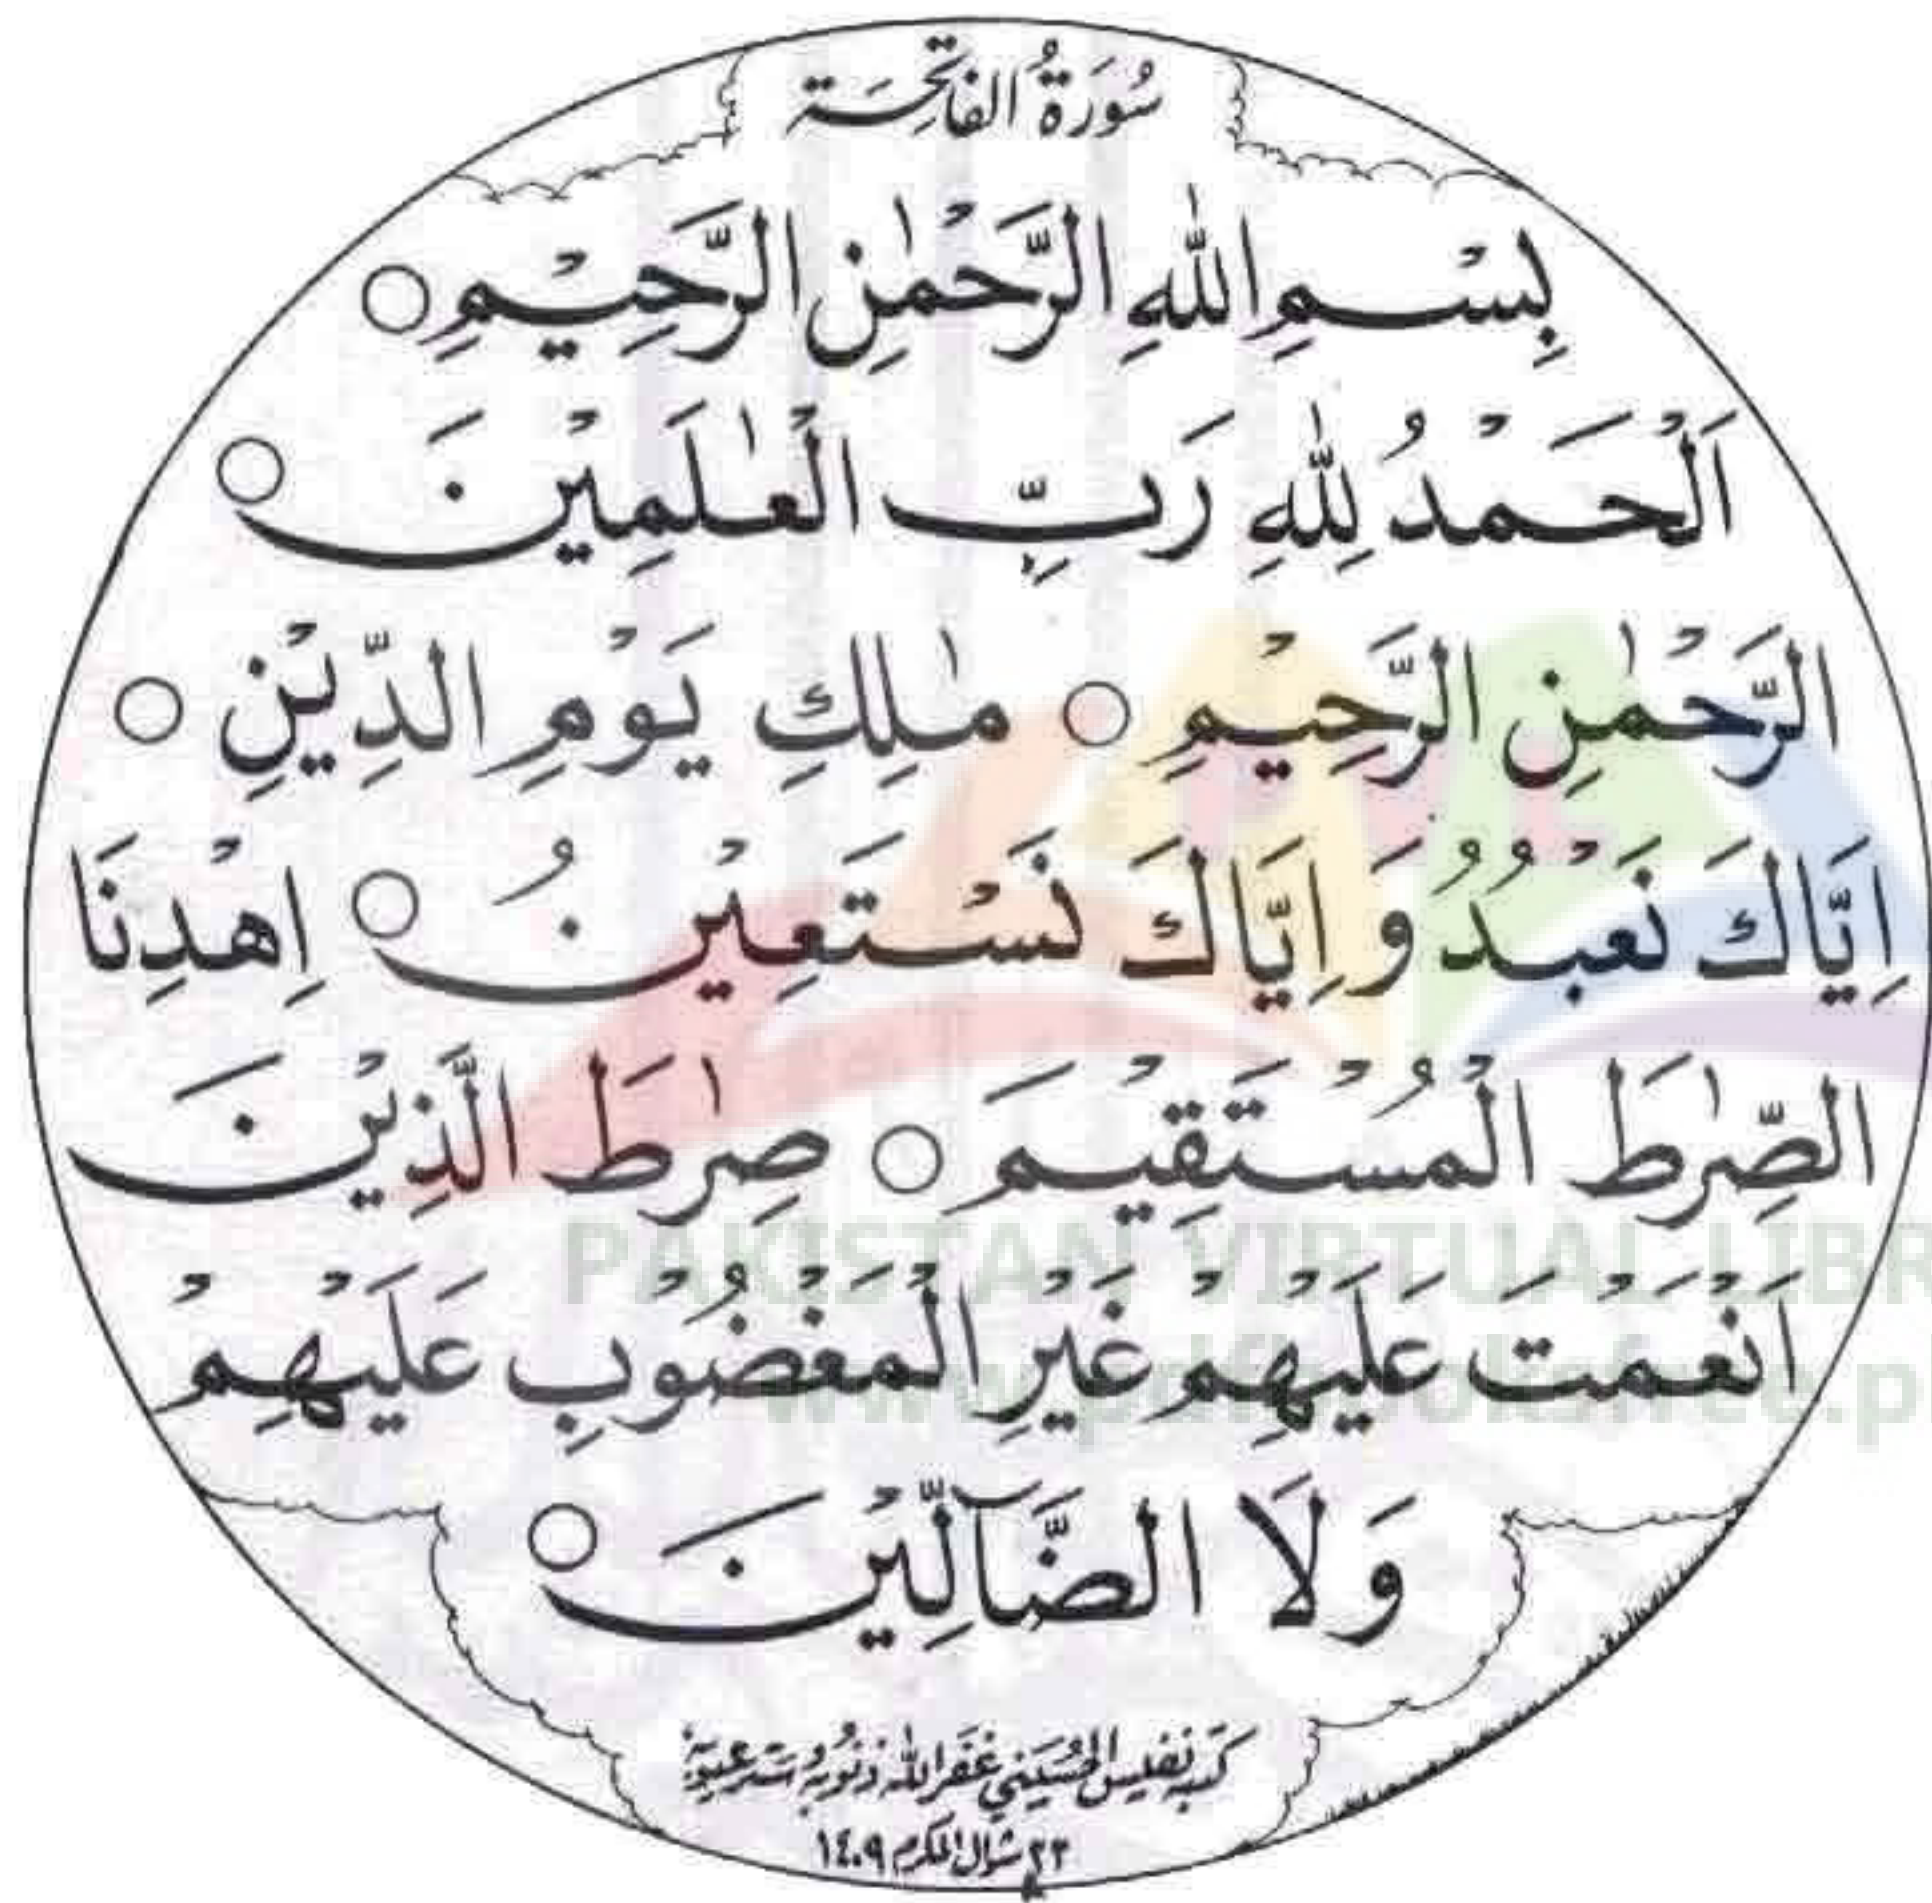 سُورَةُ الفَاتِحَة
بِسْمِ اللّٰهِ الرَّحْمٰنِ الرَّحِيْمِ ○
اَلْحَمْدُ لِلّٰهِ رَبِّ الْعٰلَمِيْنَ ○
الرَّحْمٰنِ الرَّحِيْمِ ○ مٰلِكِ يَوْمِ الدِّيْنِ ○
اِيَّاكَ نَعْبُدُ وَ اِيَّاكَ نَسْتَعِيْنُ ○ اِهْدِنَا
الصِّرٰطَ الْمُسْتَقِيْمَ ○ صِرٰطَ الَّذِيْنَ
اَنْعَمْتَ عَلَيْهِمْ غَيْرِ الْمَغْضُوْبِ عَلَيْهِمْ
وَلَا الضَّآلِّيْنَ ○
كتبه نفيس الحُسَيني غفر الله ذنوبه وستر عيوبه
٢٣ شوال المكرم ١٤٠٩
PAKISTAN VIRTUAL LIBR
www.pdfbooksfree.p